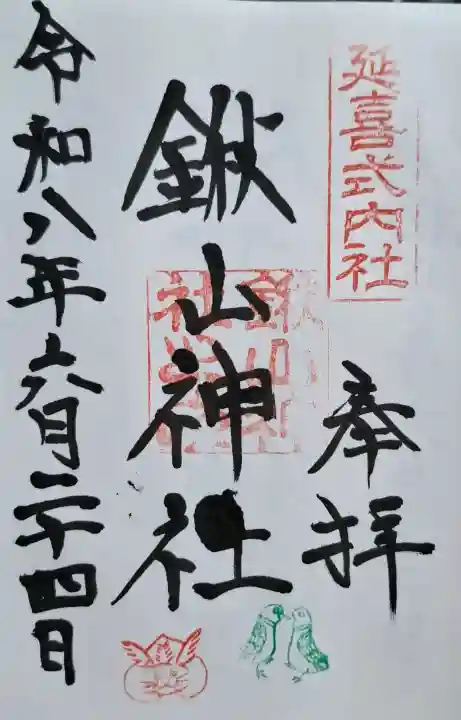 延喜式内社
奉拝
鍬山神社
令和八年六月二十四日